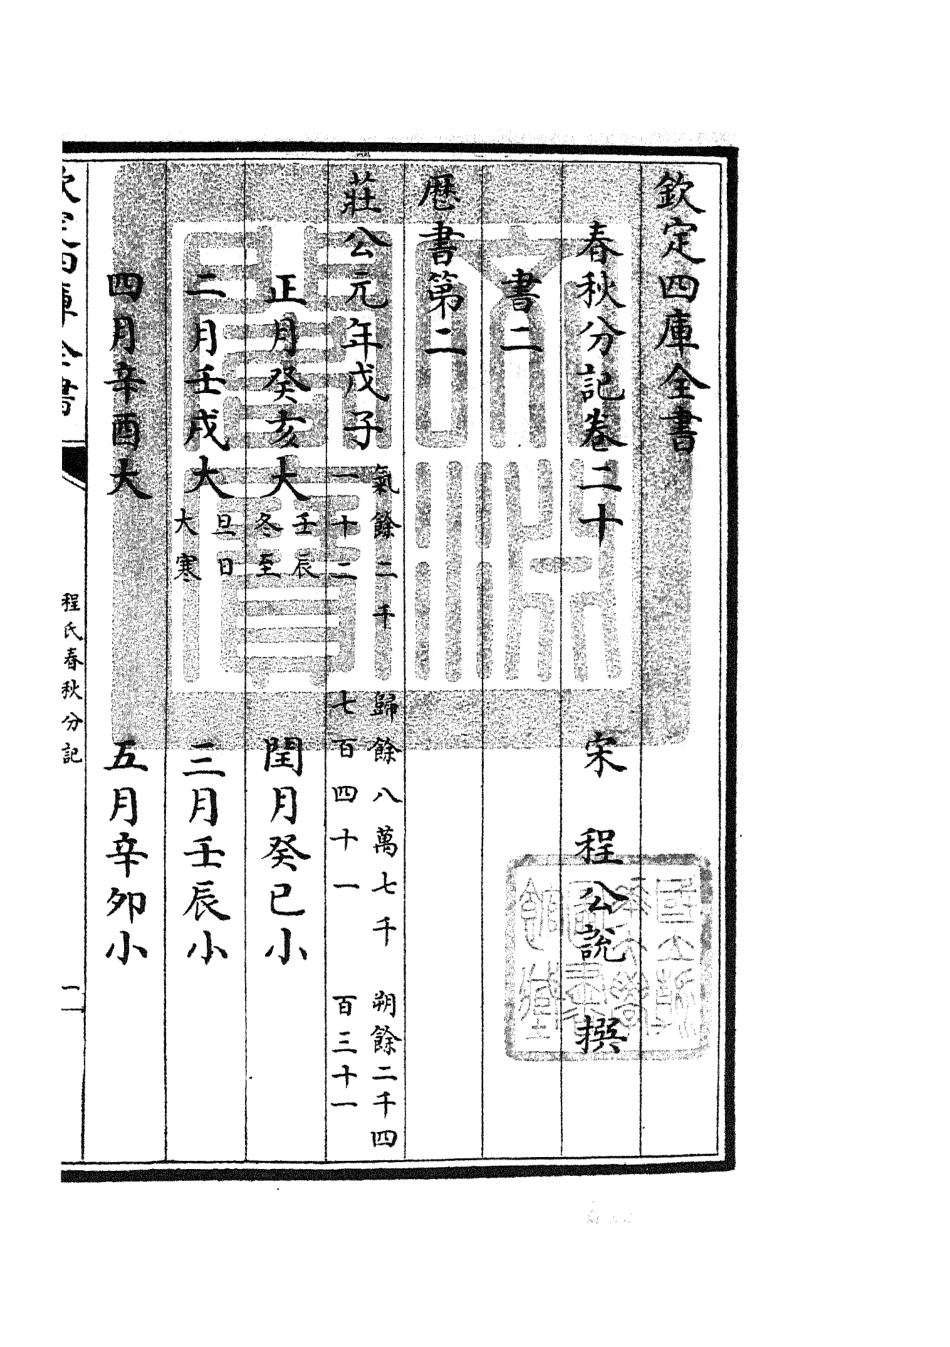 欽定四庫全書
春秋分記卷二十
宋 程公說 撰
書二
厯書第二
莊公元年戊子 氣餘二千一十二 歸餘八萬七千七百四十一 朔餘二千四百三十一
正月癸亥大 壬辰冬至 閏月癸巳小
二月壬戌大 旦日大寒 三月壬辰小
四月辛酉大 五月辛卯小
欽定四庫全書
程氏春秋分記
一